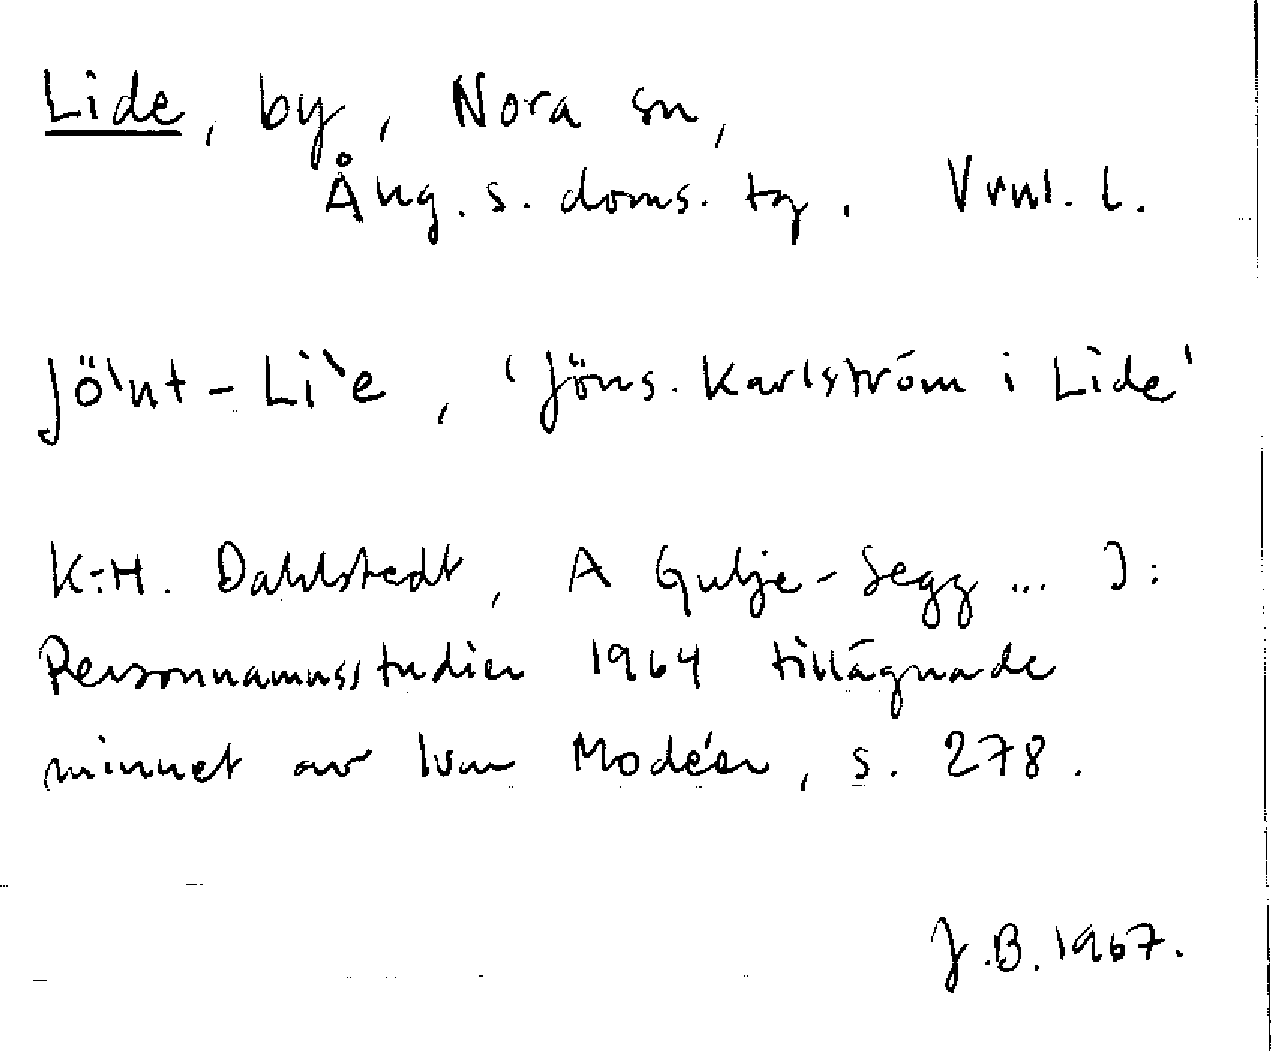 Lide, by, Nora sn,
Ång. s. doms. tg. Vrnl. l.
Jö`nt-Li`e, 'Jöns. Karlström i Lide'
K-H. Dahlstedt, A Gulje-Segg... I:
Personnamnsstudier 1964 tillägnade
minnet av Ivar Modéer, s. 278.
J.B. 1967.